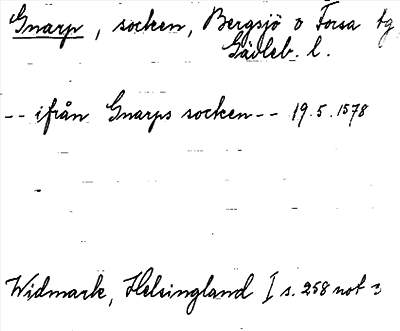 Gnarp, socken, Bergsjö o Forsa tg
Gävleb. l.
-- ifrån Gnarps socken -- 19.5.1578
Widmark, Helsingland I s. 258 not 3